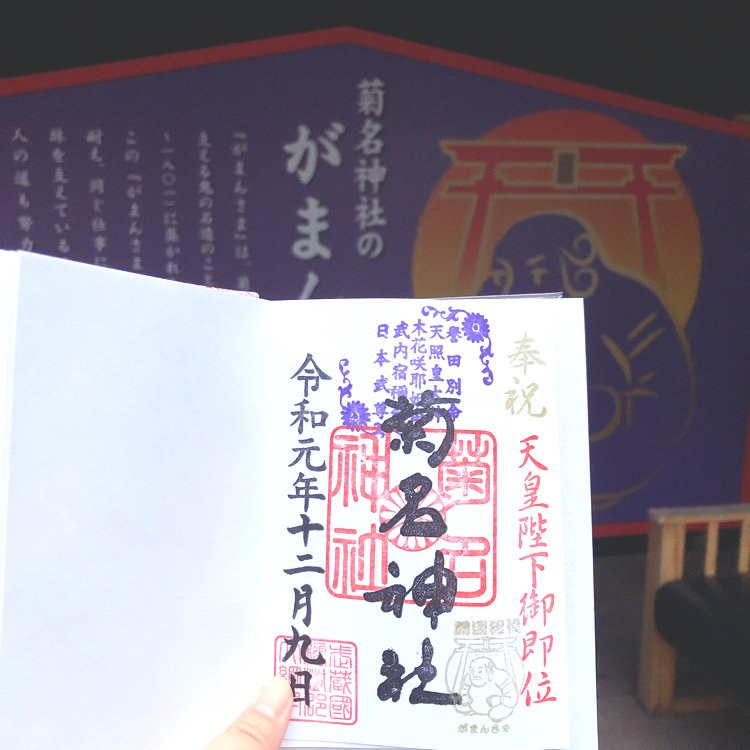 菊名神社の
がまん
『がまんさま』は、
支える鬼の石造のこと
〜一八〇一)に築かれ
この『がまんさま
耐え、同じ仕事に
を支えている
人の道も努力
奉祝
天皇陛下御即位
譽田別命
天照皇大
木花咲耶姫
武内宿禰
日本武尊
菊名神社
菊名神社
がまんさま
令和元年十二月九日
武蔵國